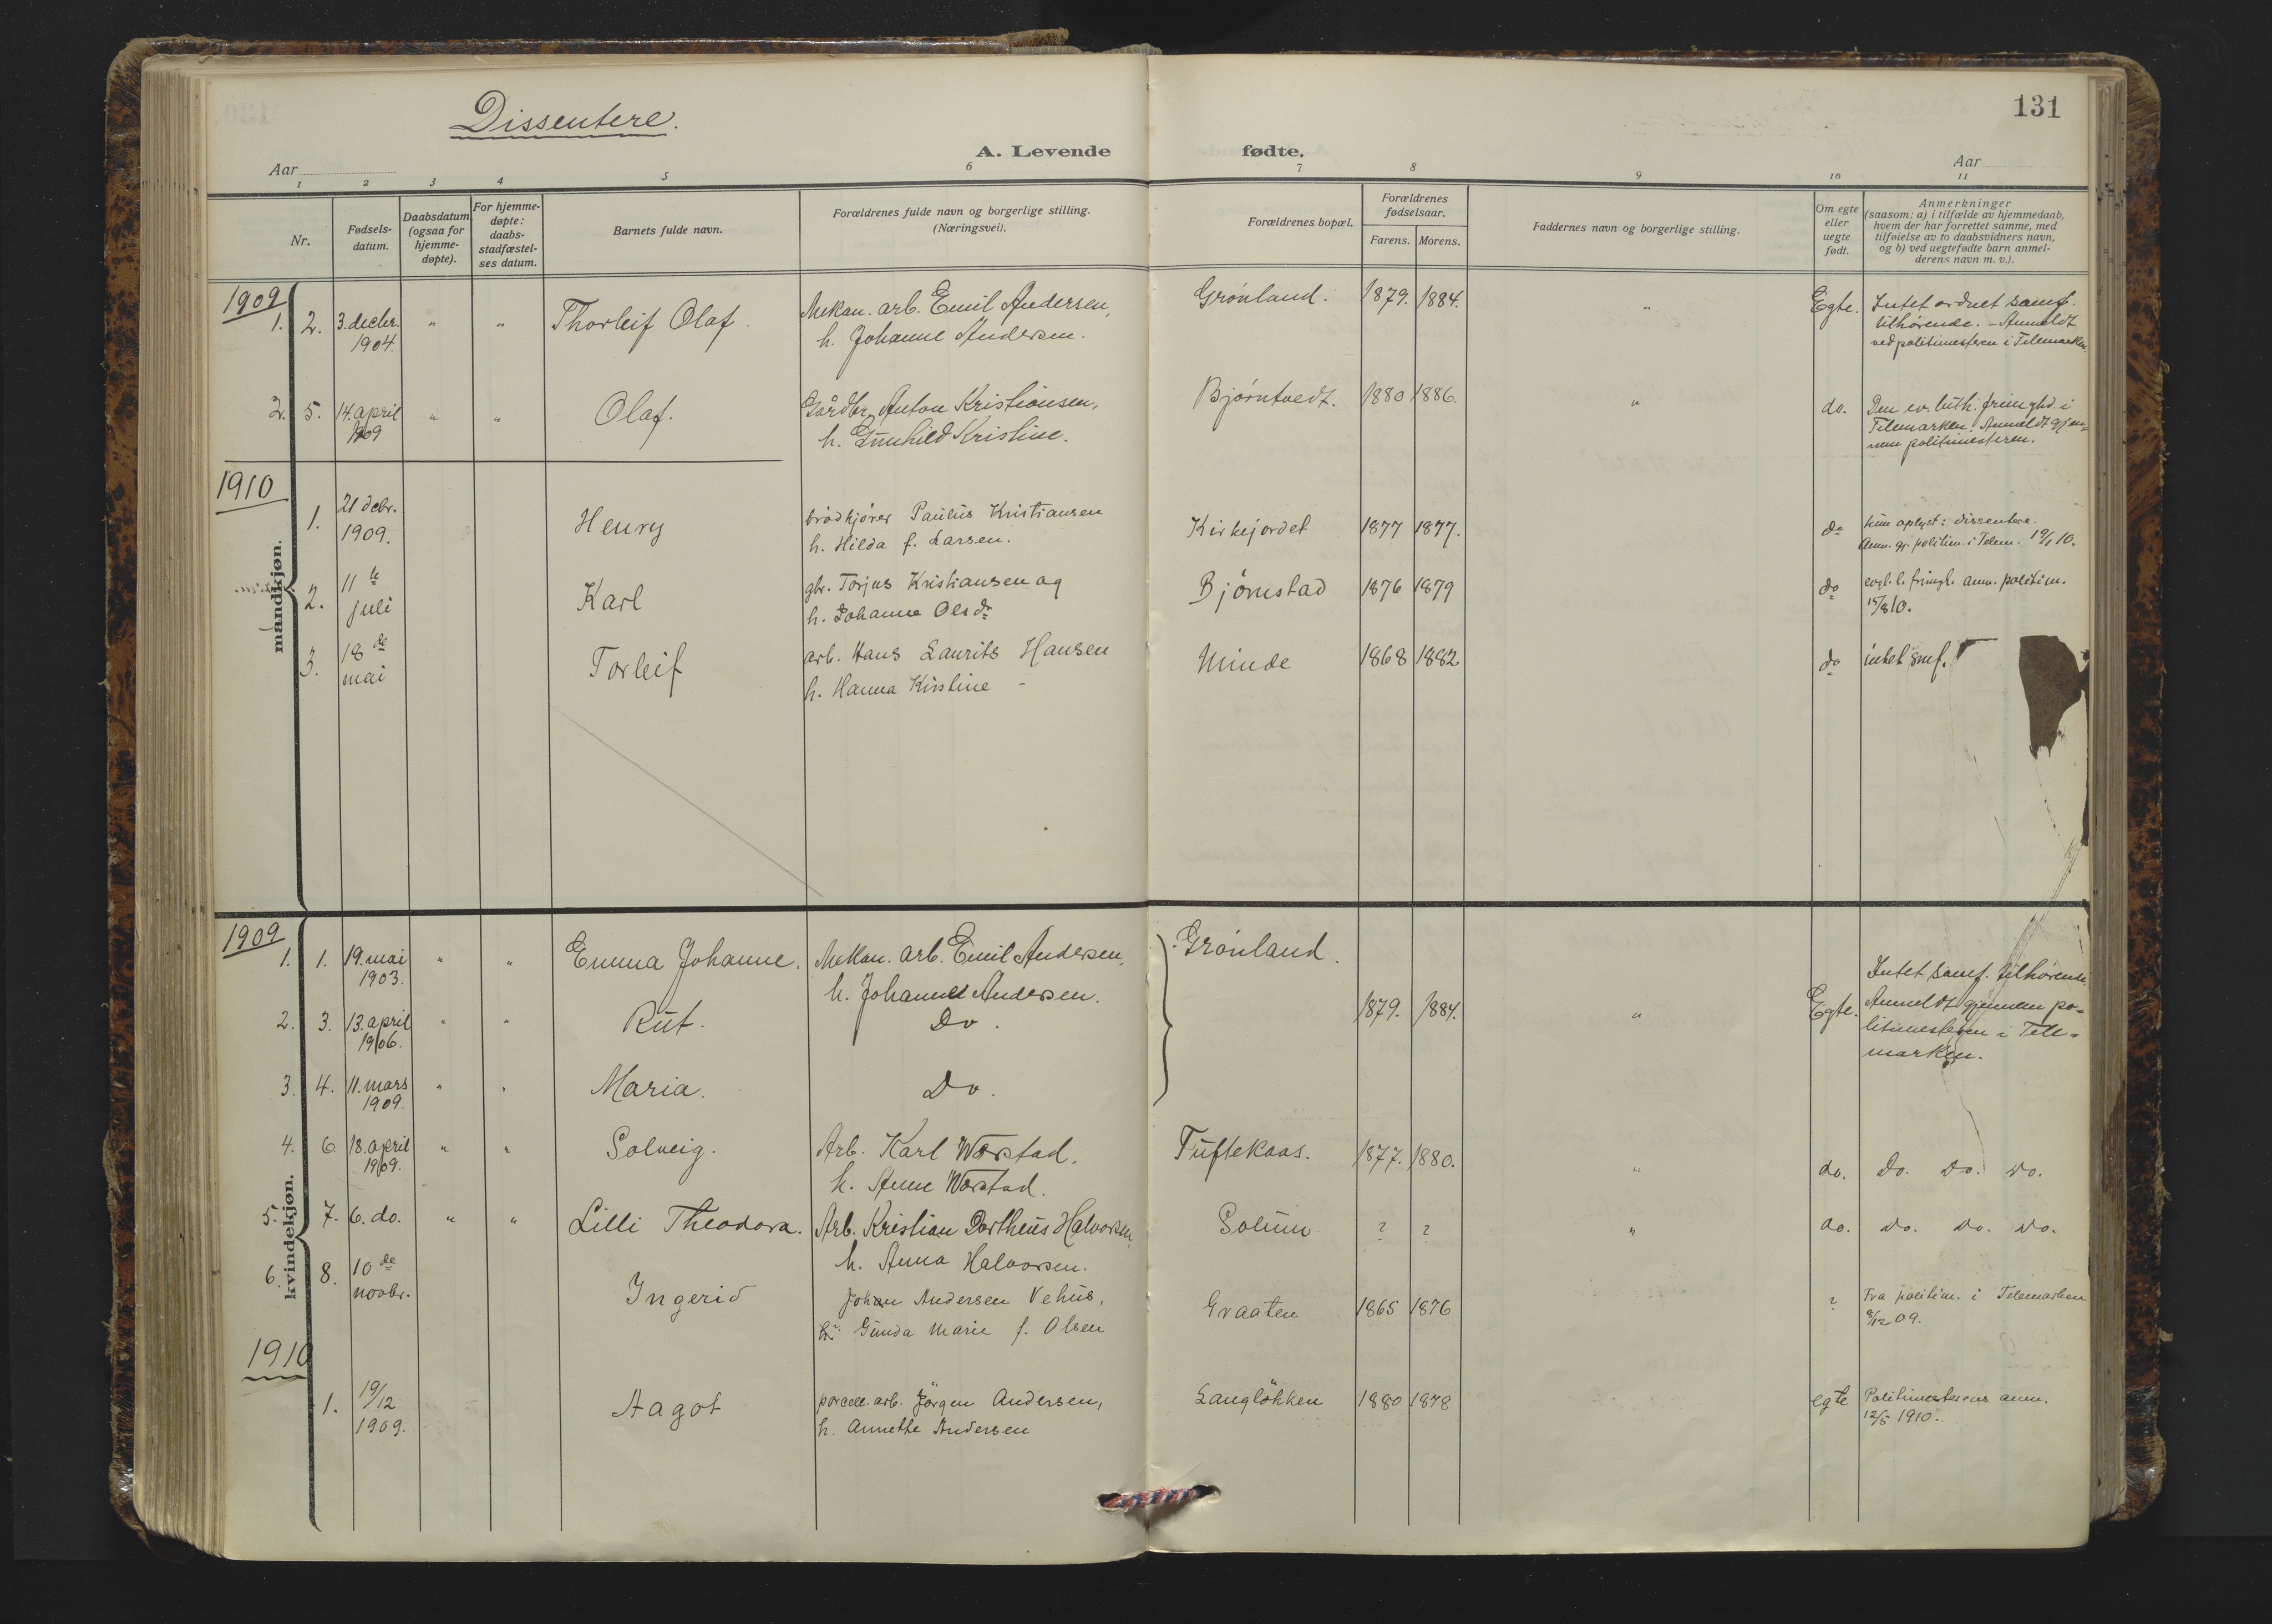 Dissentere.
131
A. Levende fødte.
Aar
Aar
1 2 3 4 5 6 7 8 9 10 11
Nr.
Fødsels-
datum.
Daabsdatum
(ogsaa for
hjemme-
døpte).
For hjemme-
døpte:
daabs-
stadfæstel-
ses datum.
Barnets fulde navn.
Forældrenes fulde navn og borgerlige stilling.
(Næringsvei).
Forældrenes bopæl.
Forældrenes
fødselsaar.
Farens. Morens.
Faddernes navn og borgerlige stilling.
Om egte
eller
uegte
født.
Anmerkninger
(saasom: a) i tilfælde av hjemmedaab,
hvem der har forrettet samme, med
tilføielse av to daabsvidners navn,
og b) ved uegtefødte barn anmel-
derens navn m. v.).
mandkjøn.
1909
1. 2. 3. decbr. " " Thorleif Olaf. Mekan. arb. Emil Andersen, Grønland. 1879. 1884. " Egte. Intet ordnet samf.
1904. h. Johanne Andersen. tilhørende. – Anmeldt
ved politimesteren i Telemarken.
2. 5. 14. april " " Olaf. Gårdbr. Anton Kristiansen, Bjørntvedt. 1880 1886. " do. Den ev. luth. frimghd. i
1909 h. Gunhild Kristine. Telemarken. Anmeldt gjen=
nem politimesteren.
1910
1. 21 debr. Henry brødkjører Paulus Kristiansen Kirkejordet 1877 1877. do kun oplyst: dissentere.
1909. h. Hilda f. Larsen. Anm. gj. politim. i Telem. 19/1 10.
2. 11te Karl gbr. Torjus Kristiansen og Bjørnstad 1876 1879 do evgl. l. frimgh. anm. politim.
juli h. Johanne Olsdr 15/8 10.
3. 18de Torleif arb. Hans Laurits Hansen Minde 1868 1882 do intet smf.
mai h. Hanna Kristine –
kvindekjøn.
1909
1. 1. 19. mai " " Emma Johanne. Mekan. arb. Emil Andersen, Grønland.
1903. h. Johanne Andersen. Intet samf. tilhørende.
2. 3. 13. april " " Rut. Do. 1879. 1884. " Egte. Anmeldt gjennem po=
1906. litimesteren i Tele=
marken.
3. 4. 11. mars " " Maria. Do.
1909.
4. 6. 18. april " " Solveig. Arb. Karl Worstad. Tuftekaas. 1877. 1880. " do. Do. Do. Do.
1909. h. Anne Worstad.
5. 7. 6. do. " " Lilli Theodora. Arb. Kristian Dortheus Halvorsen, Solum ? ? " do. Do. Do. Do.
h. Anna Halvorsen.
6. 8. 10de Ingerid Johan Andersen Vehus, Graaten 1865 1876 ? Fra politim. i Telemarken
novbr. h. Gunda Marie f. Olsen 8/12 09.
1910
1. 19/12 Aagot porcell. arb. Jörgen Andersen, Langlökken 1880 1878 egte Politimesterens anm.
1909. h. Annette Andersen 12/5 1910.